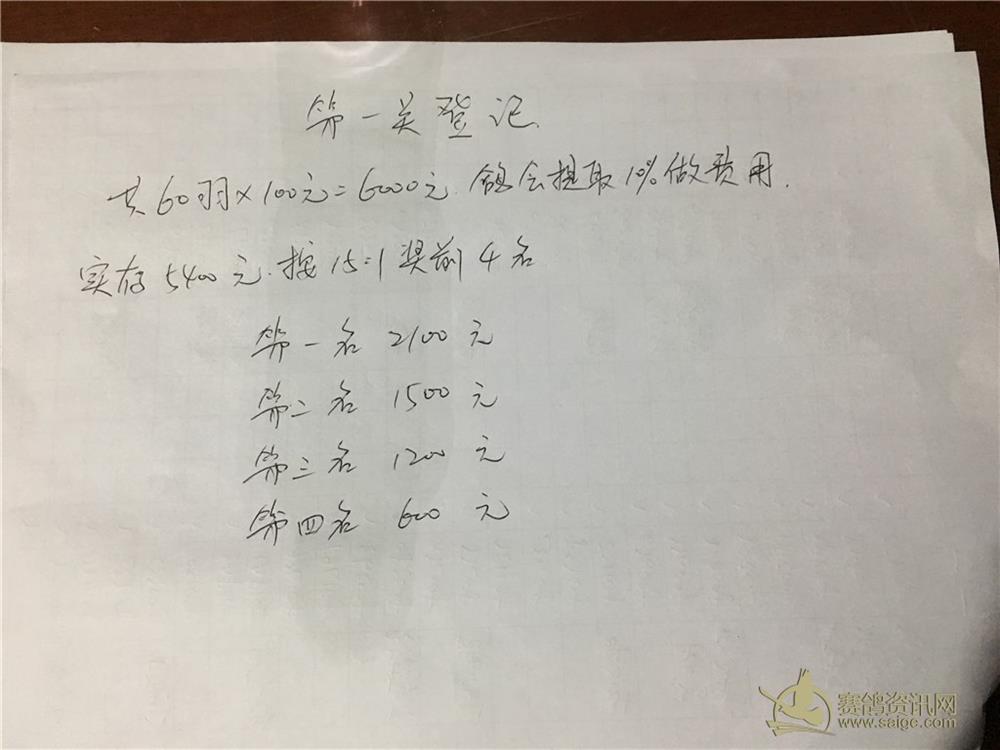 第一关登记
共60羽×100元=6000元.鸽会提取10%做费用.
实存5400元.按15:1奖前4名
第一名 2100元
第二名 1500元
第三名 1200元
第四名 600元
赛鸽资讯网
www.saige.com